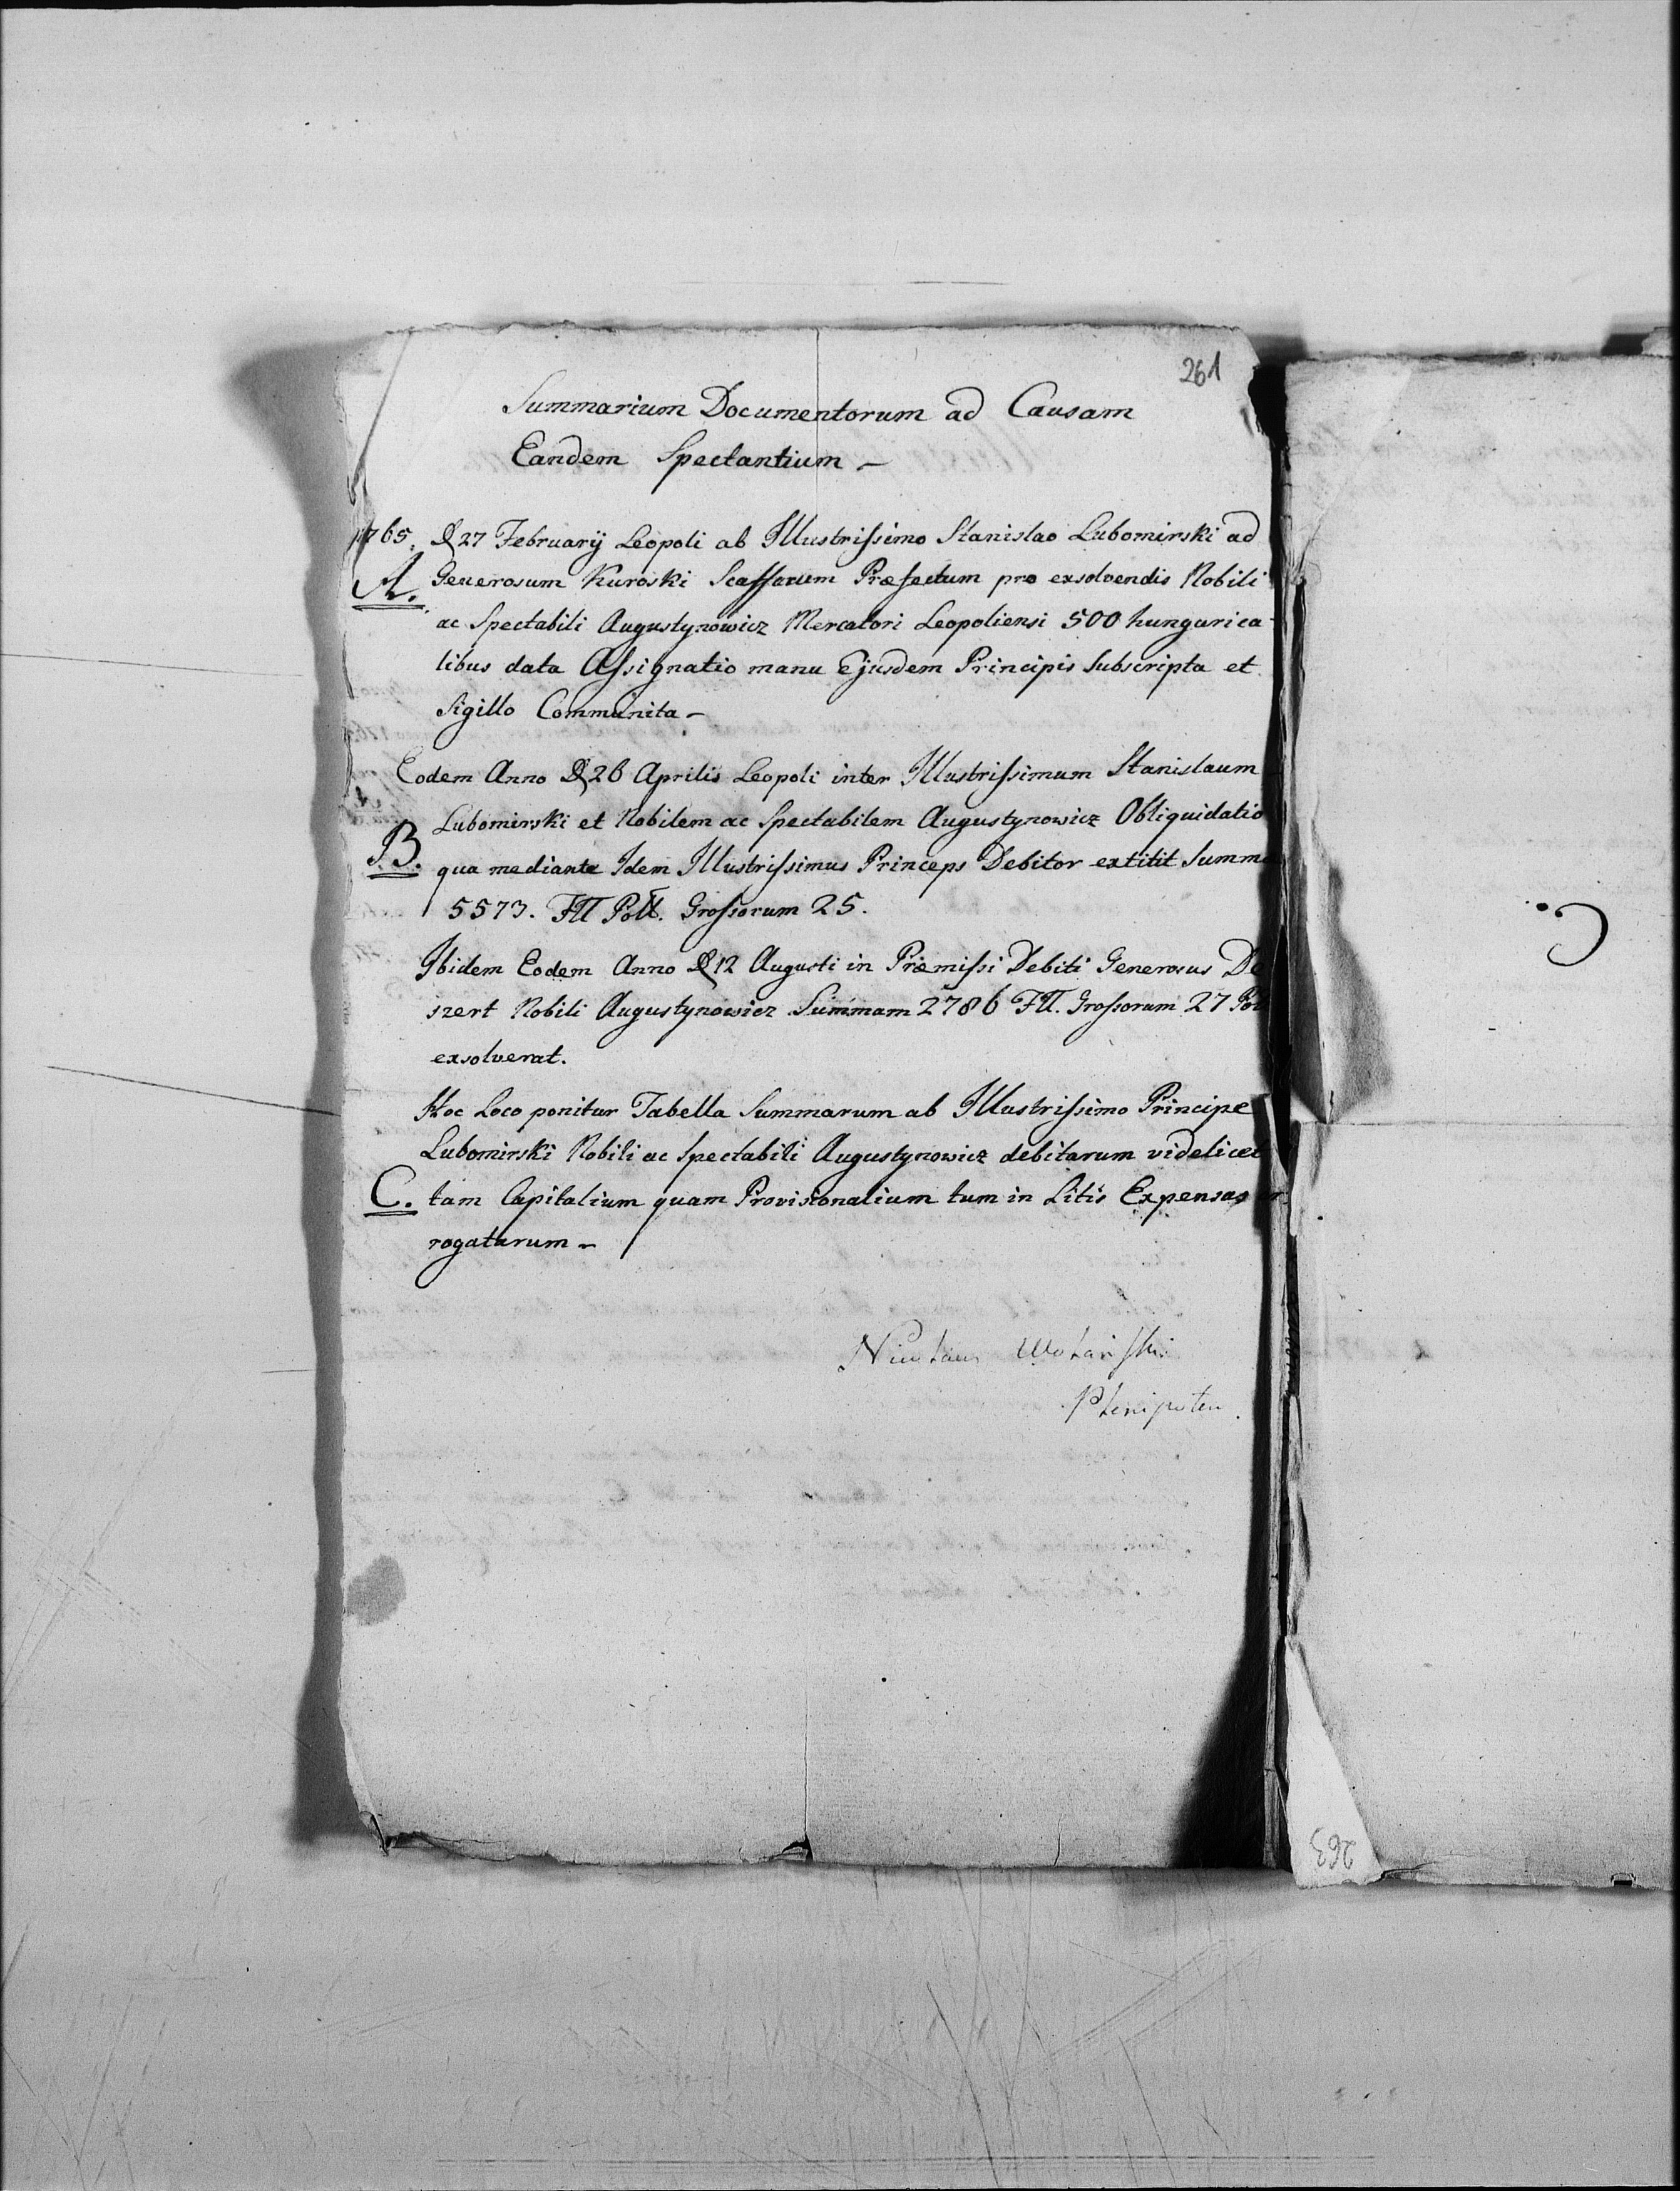 261
Summarium Documentorum ad Causam
Eandem Spectantium –
1765. D 27 Februarij Leopoli ab Illustrissimo Stanislao Lubomirski ad
A. Generosum Kuroski Scassarum Præfectum pro exsolvendis Nobili
ac Spectabili Augustynowicz Mercatori Leopoliensi 500 hungarica-
libus data Assignatio manu Ejusdem Principis Subscripta et
Sigillo Communita –
Eodem Anno D 26 Aprilis Leopoli inter Illustrissimum Stanislaum
Lubomirski et Nobilem ac Spectabilem Augustynowicz Obliquidatio
B. qua mediante Idem Illustrissimus Princeps Debitor extitit Summ
5573. Fll Poll. Grossorum 25.
Ibidem Eodem Anno D 12 Augusti in Præmissi Debiti Generosus De
szert Nobili Augustynowicz Summam 2786 Fll. Grossorum 27 Pol
exsolverat.
Hoc Loco ponitur Tabella Summarum ab Illustrissimo Principe
Lubomirski Nobili ac Spectabili Augustynowicz debitarum videlicet
C. tam Capitalium quam Provisionalium tum in Litis Expensas er
rogatarum –
Plenipoten.
263